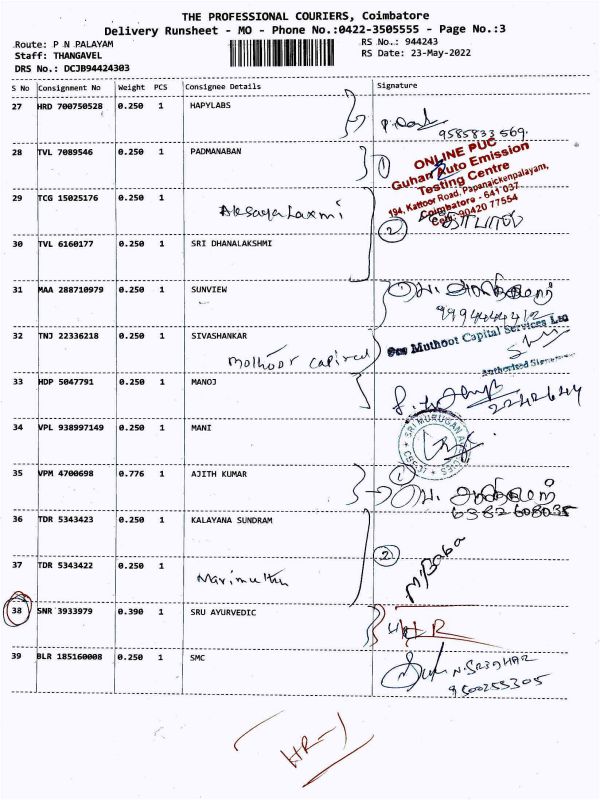 THE PROFESSIONAL COURIERS, Coimbatore
Delivery Runsheet - MO - Phone No.:0422-3505555 - Page No.:3
Route: P N PALAYAM
RS No.: 944243
Staff: THANGAVEL
RS Date: 23-May-2022
DRS No.: DCJB94424303
S No Consignment No Weight PCS Consignee Details Signature
27 HRD 700750528 0.250 1 HAPYLABS
9585833569.
28 TVL 7089546 0.250 1 PADMANABAN
①
ONLINE PUC
Guhan Auto Emission
Testing Centre
194, Kattoor Road, Papanaickenpalayam,
Coimbatore - 641 037
Cell: 90420 77554
29 TCG 15025176 0.250 1
Aksaya Laxmi
②
30 TVL 6160177 0.250 1 SRI DHANALAKSHMI
31 MAA 288710979 0.250 1 SUNVIEW
①
9994444412
32 TNJ 22336218 0.250 1 SIVASHANKAR
Mothoor capired
Muthoot Capital Services Ltd
Authorised Signatory
33 HDP 5047791 0.250 1 MANOJ
2242644
34 VPL 938997149 0.250 1 MANI
SRI MURUGAN AGENCIES
35 VPM 4700698 0.776 1 AJITH KUMAR
①
6382608035
36 TDR 5343423 0.250 1 KALAYANA SUNDRAM
②
M. Baba
37 TDR 5343422 0.250 1
Marimuthu
38 SNR 3933979 0.390 1 SRU AYURVEDIC
HR
39 BLR 185160008 0.250 1 SMC
N. SRIDHAR
9500255305
HR-1